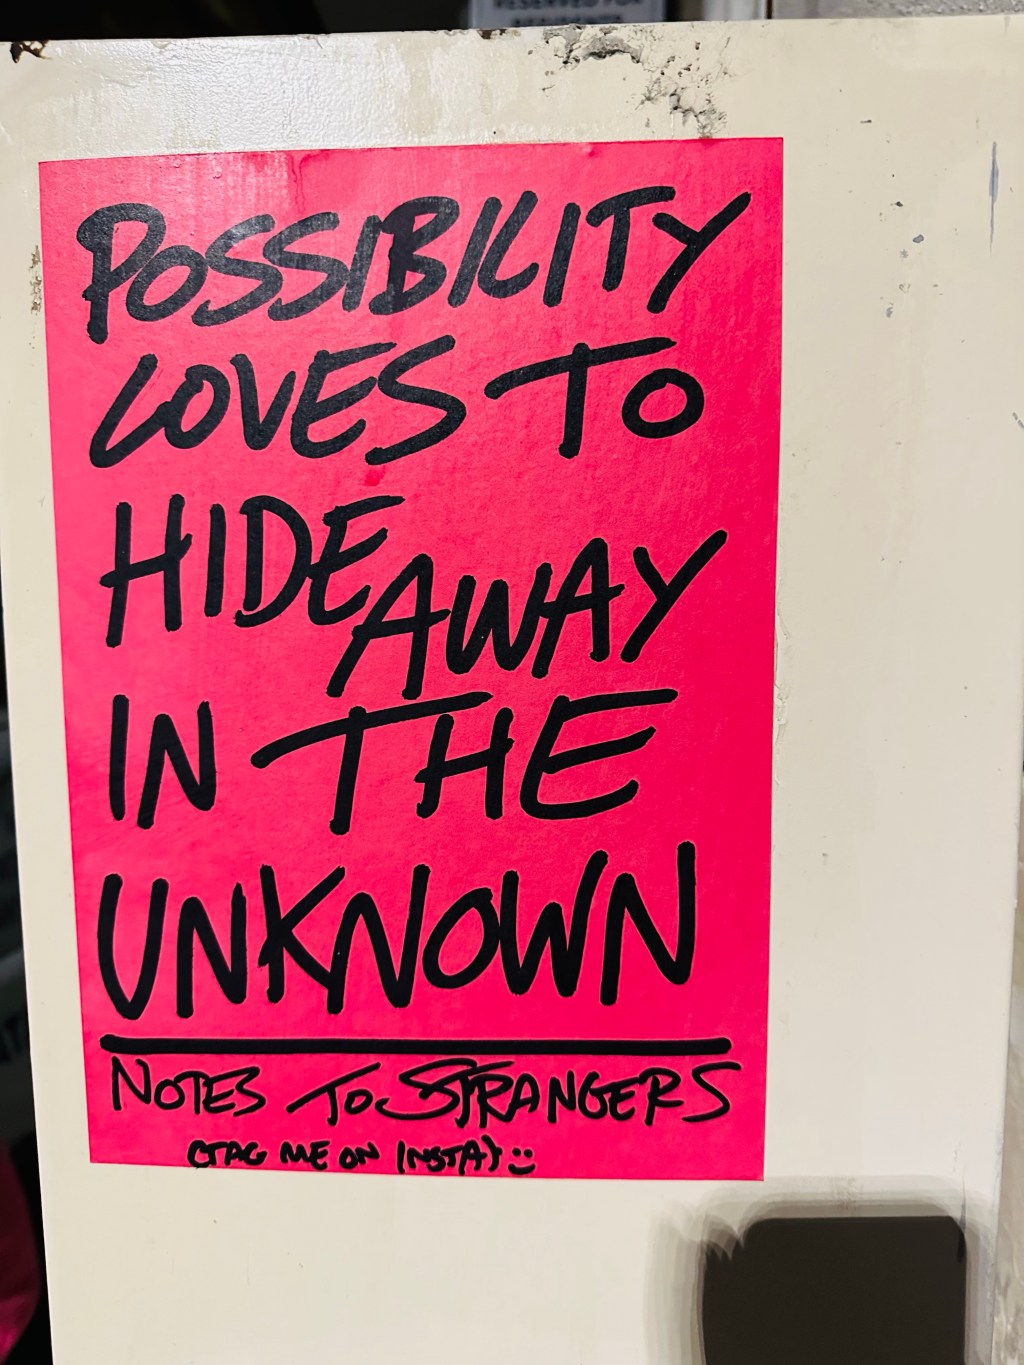 RESERVED FOR
POSSIBILITY
LOVES TO
HIDE AWAY
IN THE
UNKNOWN
NOTES TO STRANGERS
(TAG ME ON INSTA) :)